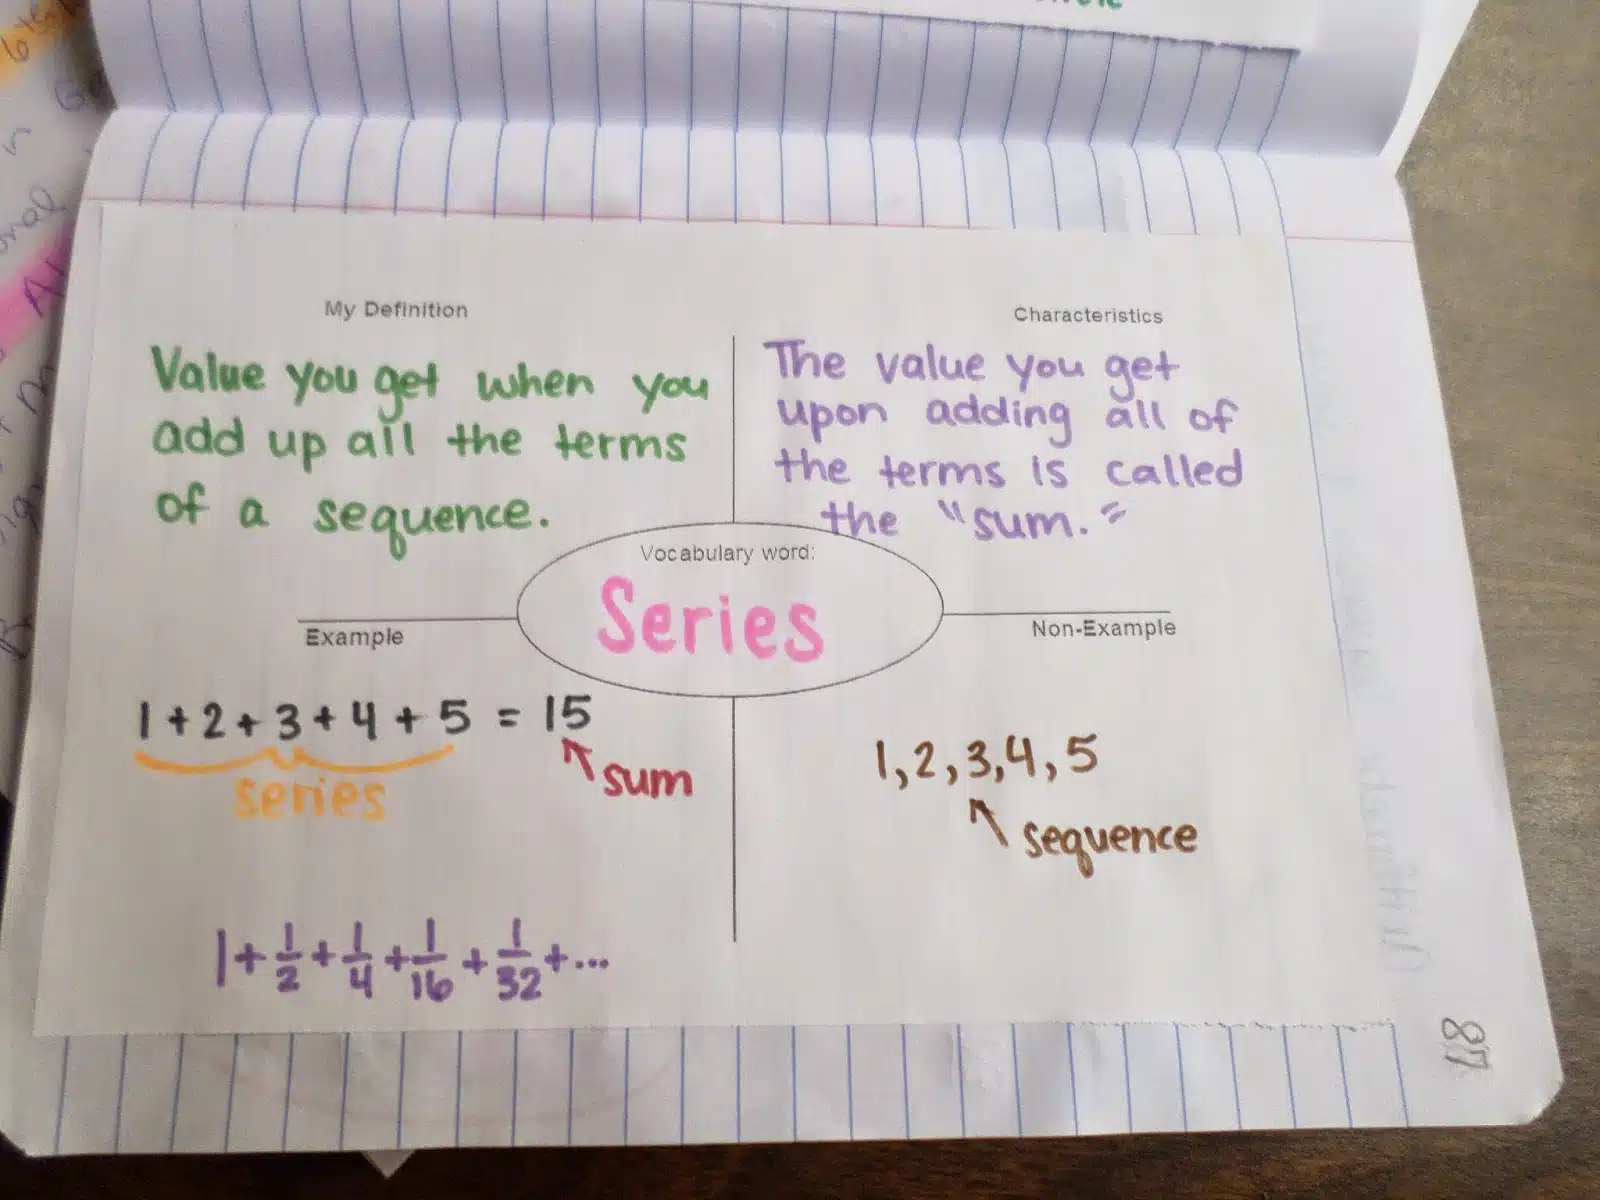 My Definition
Value you get when you
add up all the terms
of a sequence.
Characteristics
The value you get
upon adding all of
the terms is called
the "sum."
Vocabulary word:
Series
Example
1 + 2 + 3 + 4 + 5 = 15
series
sum
1 + 1/2 + 1/4 + 1/16 + 1/32 + ...
Non-Example
1, 2, 3, 4, 5
sequence
87